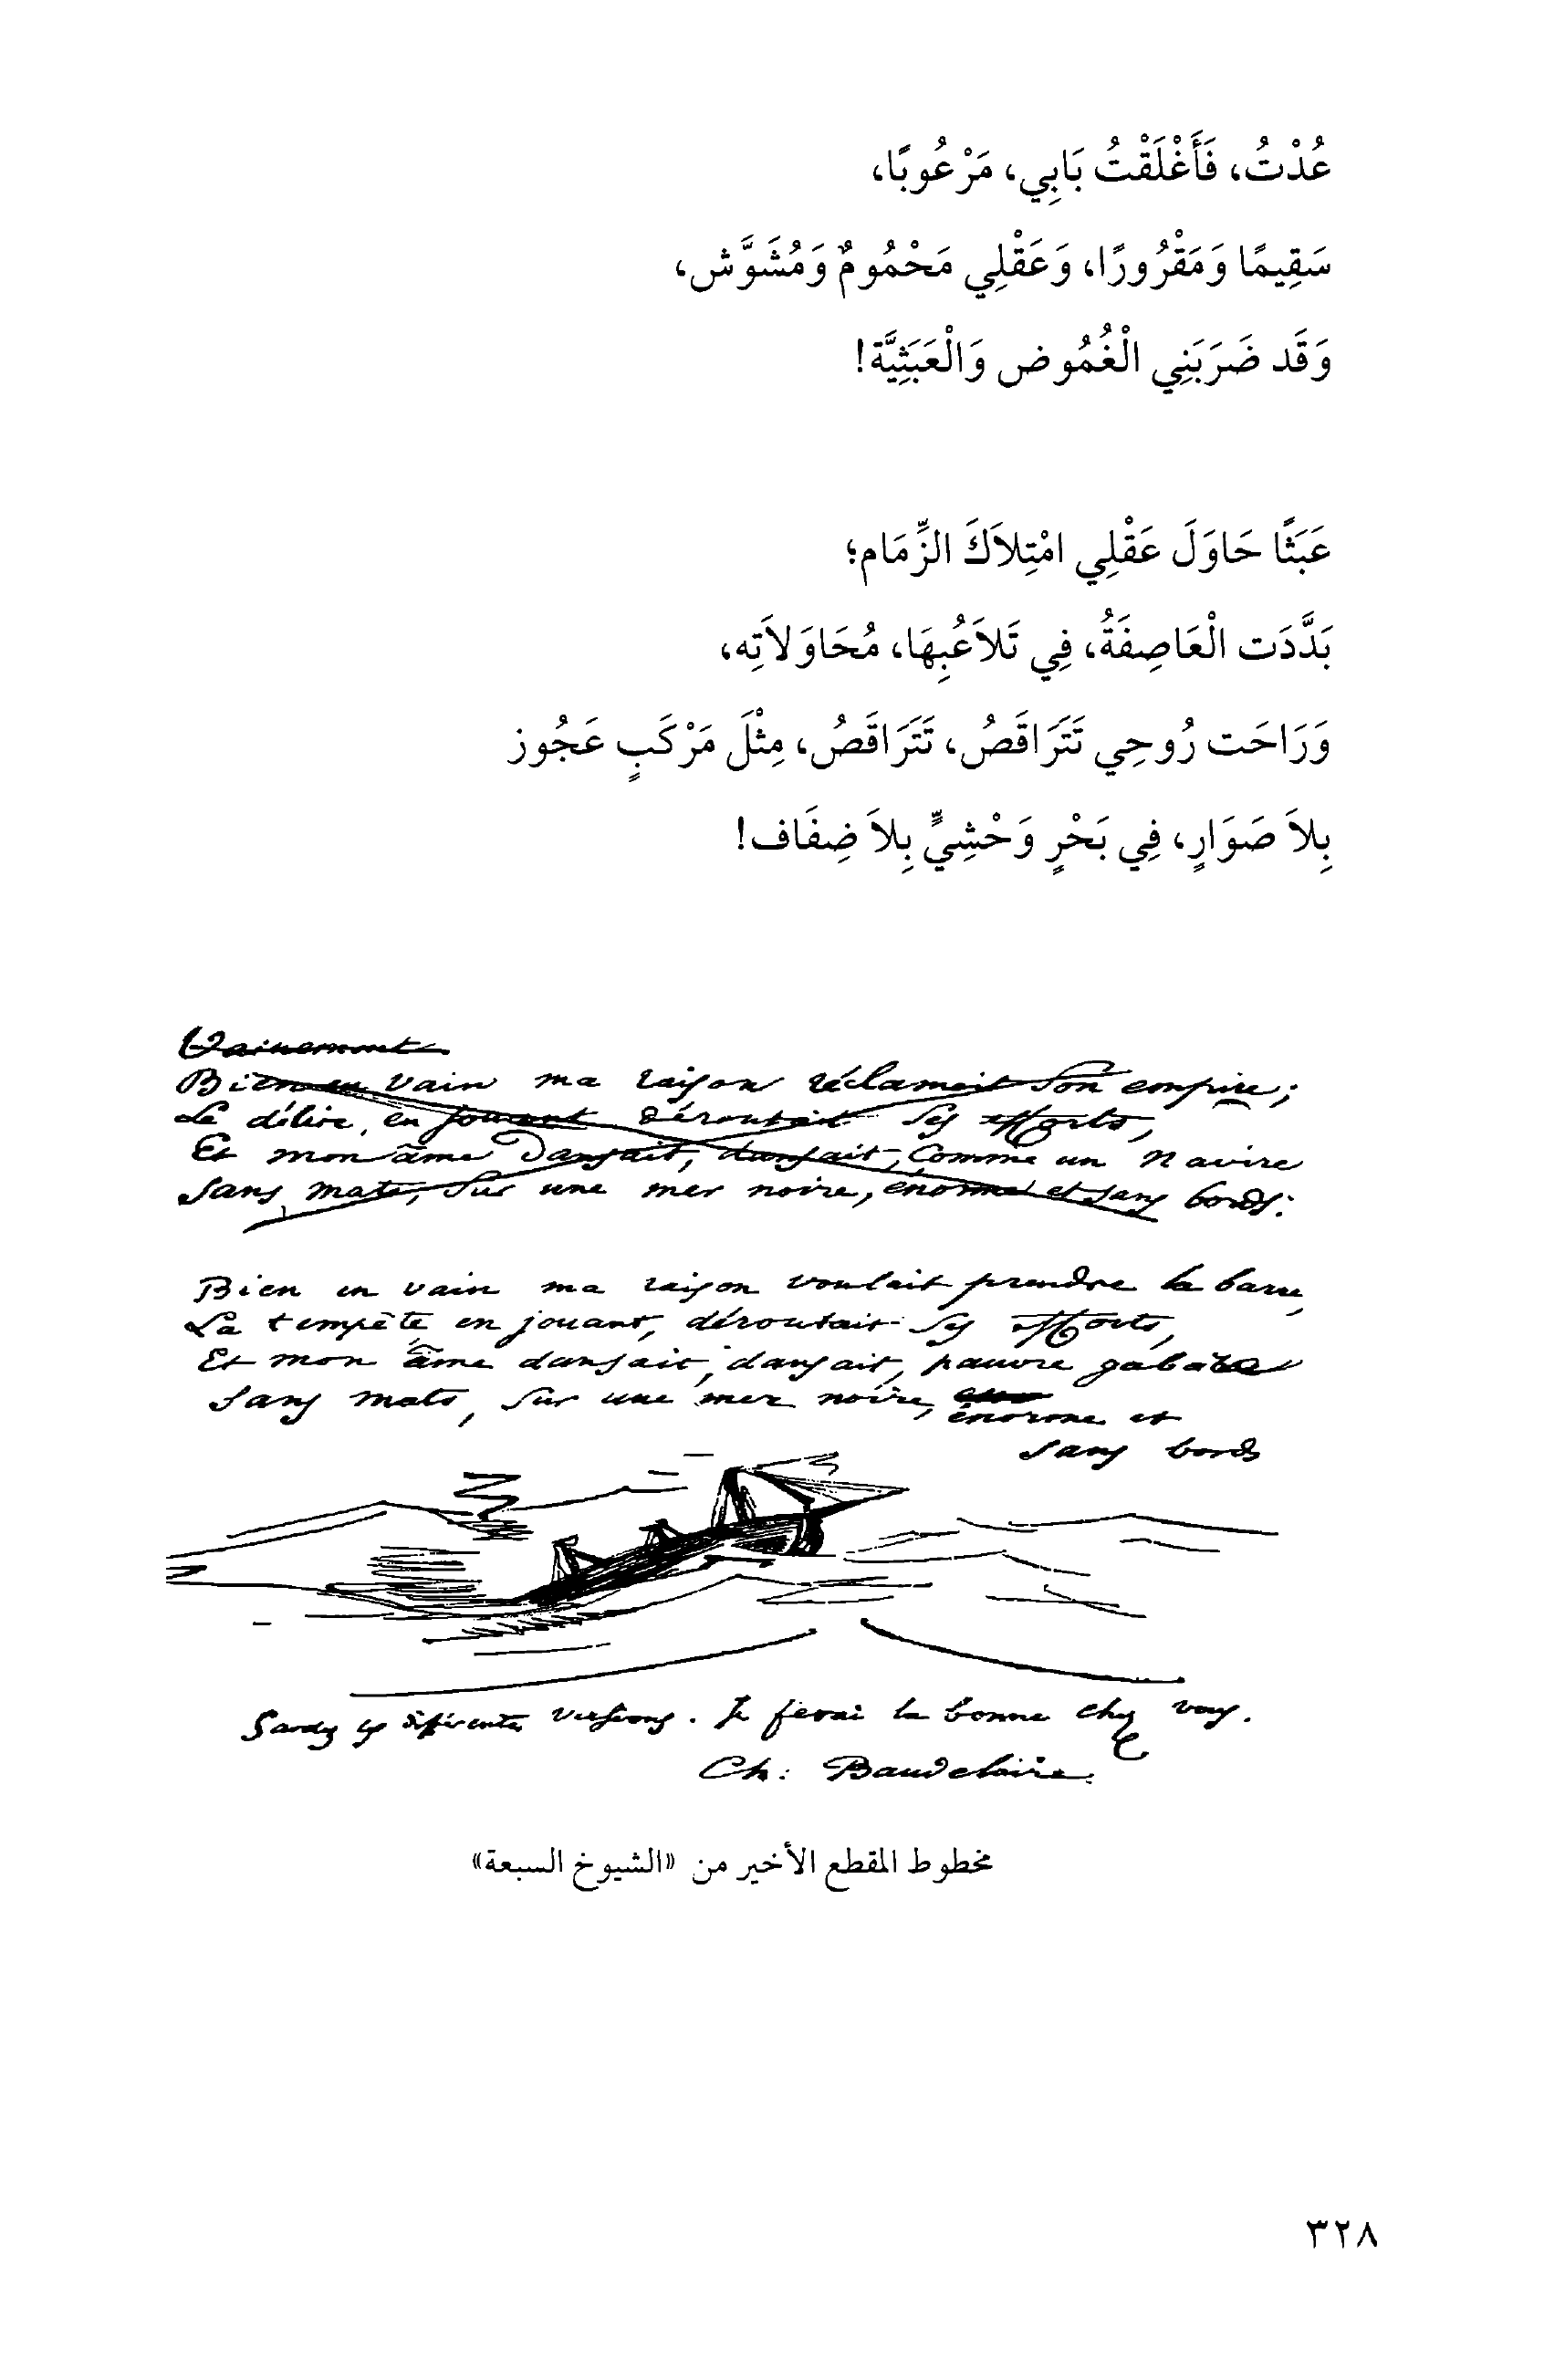 عُدْتُ، فَأَغْلَقْتُ بَابِي، مَرْعُوبًا،
سَقِيمًا وَمَقْرُورًا، وَعَقْلِي مَحْمُومٌ وَمُشَوَّش،
وَقَد ضَرَبَنِي الْغُمُوض وَالْعَبَثِيَّة!
عَبَثًا حَاوَلَ عَقْلِي امْتِلاَكَ الزِّمَام؛
بَدَّدَت الْعَاصِفَةُ، فِي تَلاَعُبِهَا، مُحَاوَلاَتِه،
وَرَاحَت رُوحِي تَتَرَاقَصُ، تَتَرَاقَصُ، مِثْلَ مَرْكَبٍ عَجُوز
بِلاَ صَوَارٍ، فِي بَحْرٍ وَحْشِيٍّ بِلاَ ضِفَاف!
Vainement
Bien en vain ma raison réclamait son empire;
Le délire, en jouant déroutait ses efforts,
Et mon âme dansait, dansait, comme un navire
Sans mats, sur une mer noire, énorme et sans bords:
Bien en vain ma raison voulait prendre la barre,
La tempête en jouant, déroutait ses efforts,
Et mon âme dansait, dansait, pauvre gabare
Sans mats, sur une mer noire, énorme et
sans bords
Gardez ces différentes versions. Je ferai la bonne chez vous.
Ch: Baudelaire.
مخطوط المقطع الأخير من «الشيوخ السبعة»
٣٢٨